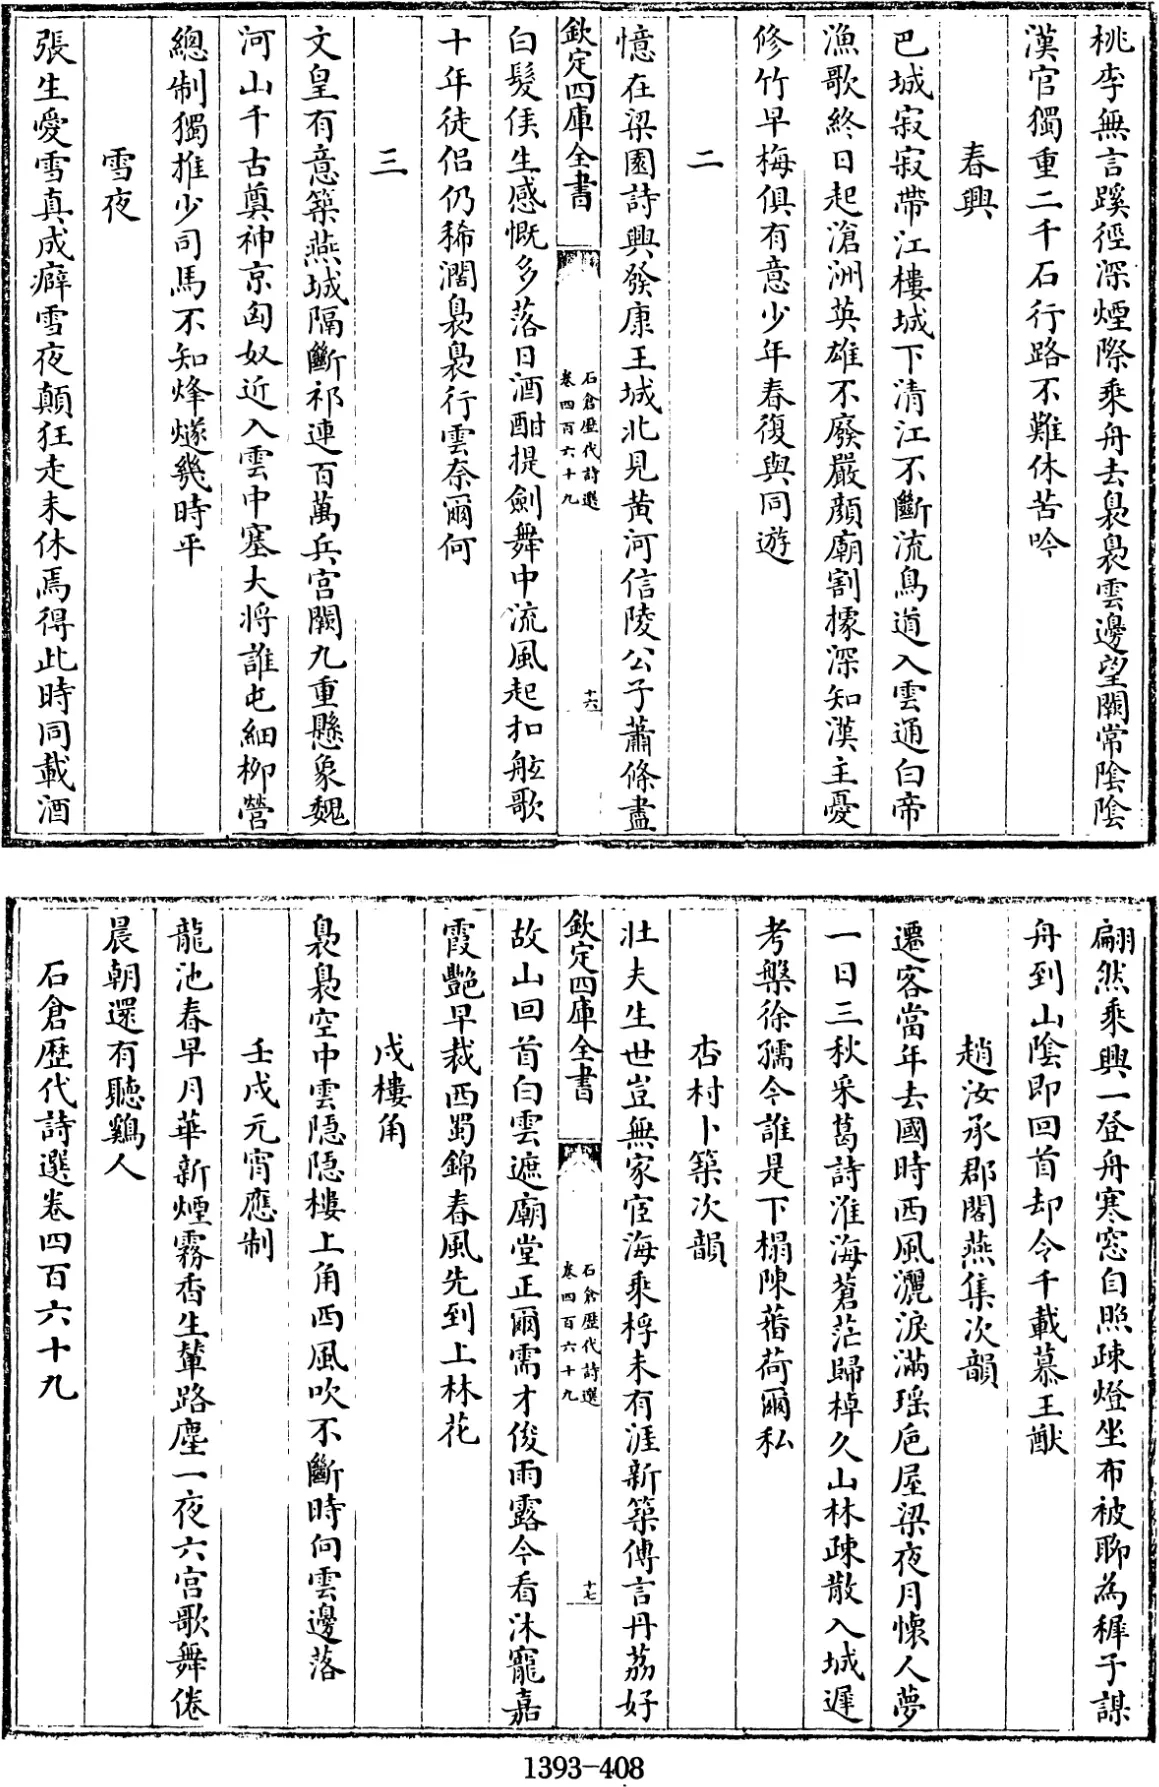 桃李無言蹊徑深煙際乘舟去裊裊雲邊望闕常陰陰
漢官獨重二千石行路不難休苦吟
春興
巴城寂寂帶江樓城下清江不斷流鳥道入雲通白帝
漁歌終日起滄洲英雄不廢嚴顔廟割據深知漢主憂
修竹早梅俱有意少年春復與同遊
二
憶在梁園詩興發康王城北見黄河信陵公子蕭條盡
欽定四庫全書
石倉歴代詩選
卷四百六十九
十六
白髮侯生感慨多落日酒酣提劍舞中流風起扣舷歌
十年徒侣仍稀濶裊裊行雲奈爾何
三
文皇有意築燕城隔斷祁連百萬兵宫闕九重懸象魏
河山千古奠神京匈奴近入雲中塞大將誰屯細柳營
總制獨推少司馬不知烽燧幾時平
雪夜
張生愛雪真成癖雪夜顛狂走未休焉得此時同載酒
翩然乘興一登舟寒窓自照疎燈坐布被聊為穉子謀
舟到山陰即回首却令千載慕王猷
趙汝承郡閣燕集次韻
遷客當年去國時西風灑淚滿瑶巵屋梁夜月懐人夢
一日三秋采葛詩淮海蒼茫歸棹久山林疎散入城遲
考槃徐孺今誰是下榻陳蕃荷爾私
杏村卜築次韻
壯夫生世豈無家宦海乘桴未有涯新築傳言丹荔好
欽定四庫全書
石倉歴代詩選
卷四百六十九
十七
故山回首白雲遮廟堂正爾需才俊雨露今看沐寵嘉
霞艷早裁西蜀錦春風先到上林花
戍樓角
裊裊空中雲隠隠樓上角西風吹不斷時向雲邊落
壬戍元宵應制
龍池春早月華新煙霧香生輦路塵一夜六宫歌舞倦
晨朝還有聽鷄人
石倉歴代詩選卷四百六十九
1393-408